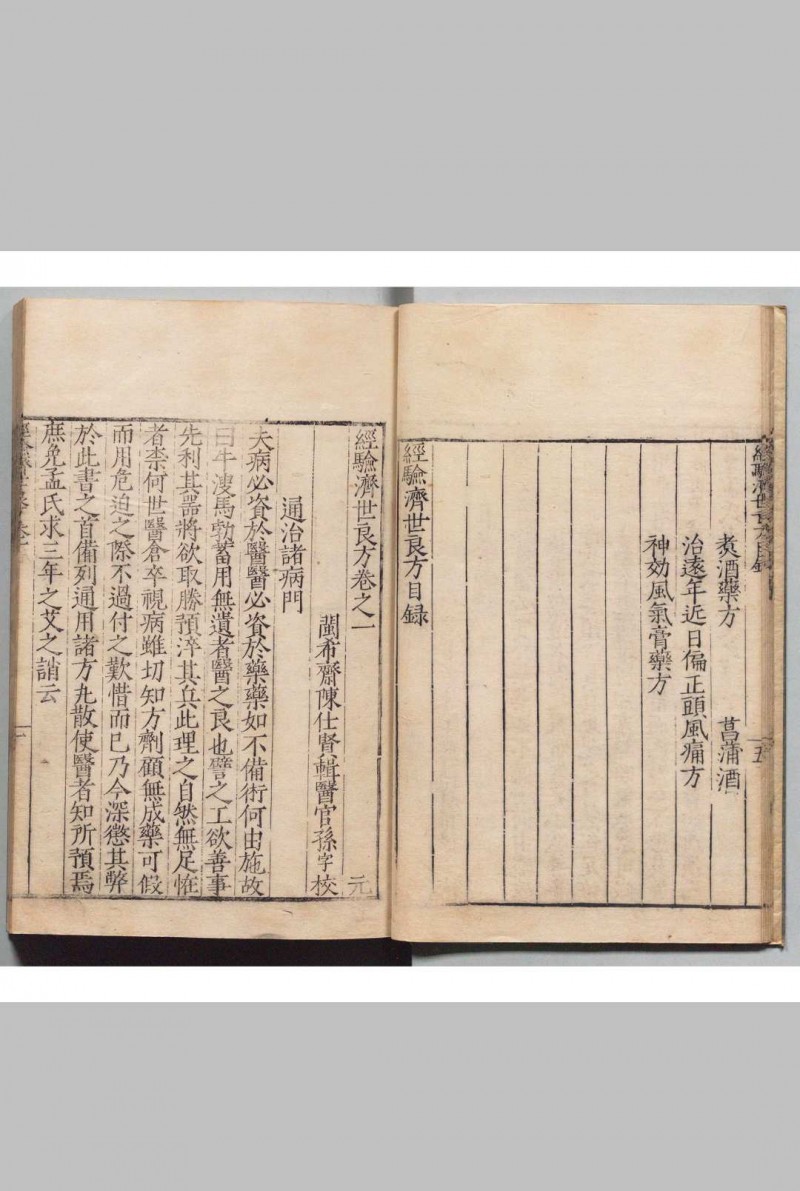 經驗濟世良方目錄
五
煑酒藥方 菖蒲酒
治遠年近日偏正頭風痛方
神効風氣膏藥方
經驗濟世良方目録
經驗濟世良方卷之一 元
閩希齋陳仕賢輯醫官孫字校
通治諸病門
夫病必資於醫醫必資於藥藥如不備術何由施故
曰牛溲馬勃蓄用無遺者醫之良也譬之工欲善事
先利其噐將欲取勝預淬其兵此理之自然無足恠
者柰何世醫倉卒視病雖切知方劑顧無成藥可假
而用危迫之際不過付之歎惜而已乃今深懲其弊
於此書之首備列通用諸方丸散使醫者知所預焉
庶免孟氏求三年之艾之誚云
一